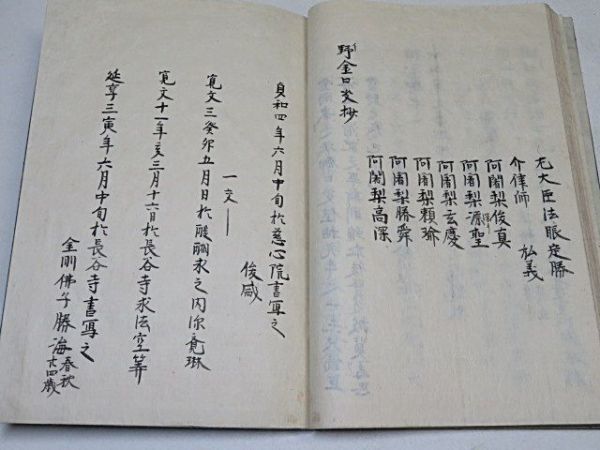 尤大臣法眼定勝
介律師 弘義
阿闍梨俊真
阿闍梨源聖
阿闍梨玄慶
阿闍梨頼瑜
阿闍梨勝舜
阿闍梨高深
野金口炎抄
貞和四年六月中旬於慈心院書写之
俊盛
一交
寛文三癸卯五月日於醍醐求之内深竟琳
寛文十一年亥三月十六日於長谷寺求法空等
延享三寅年六月中旬於長谷寺書写之
金剛佛子勝海 春秋 六四歳